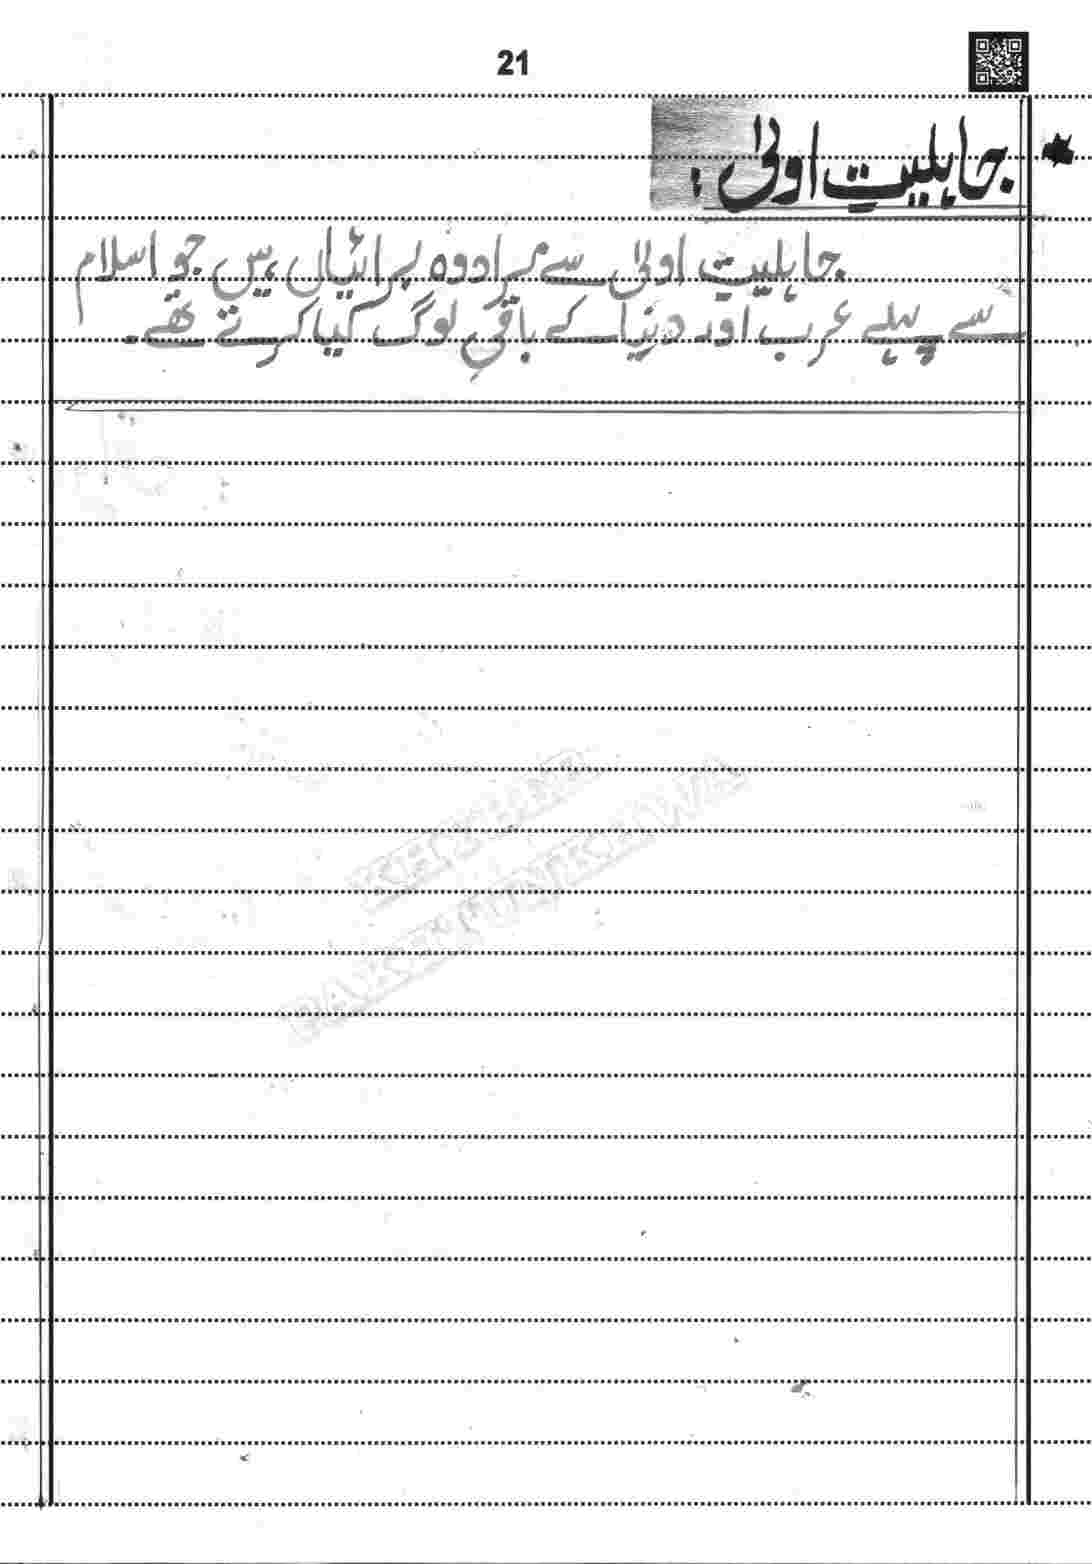 21
* جاہلیتِ اولیٰ :
جاہلیتِ اولیٰ سے مراد وہ برائیاں ہیں جو اسلام
سے پہلے عرب اور دنیا کے باقی لوگ کیا کرتے تھے۔
KHYBER
PAKHTUNKHWA